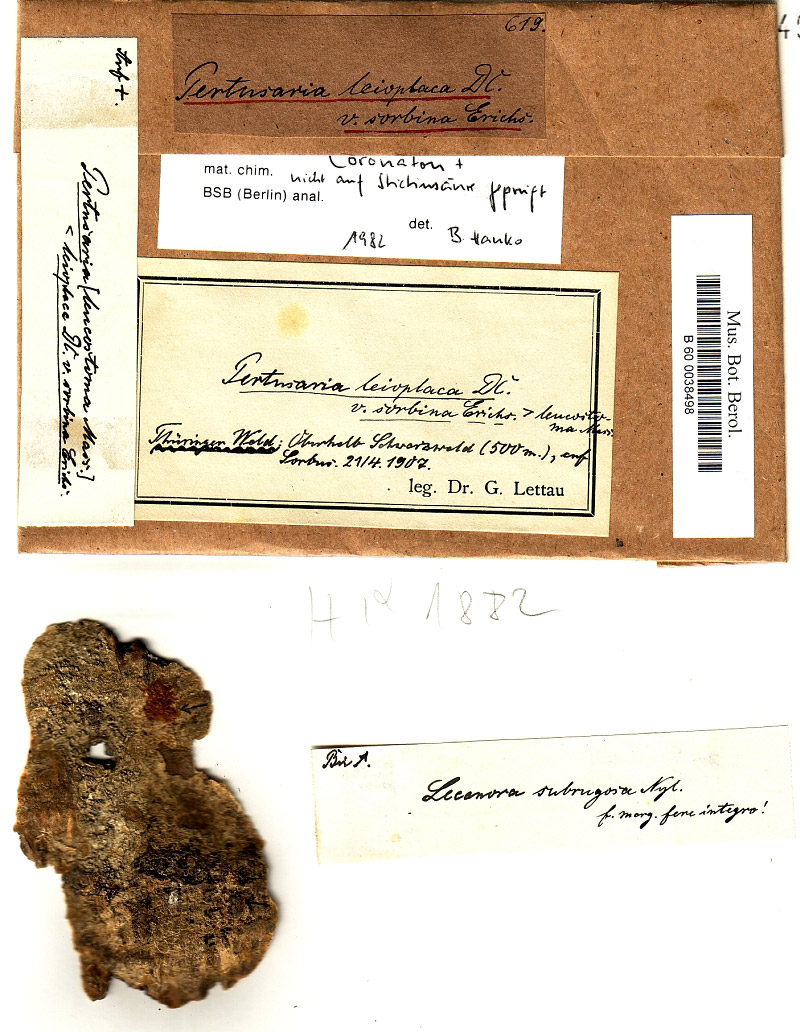 619.
Pertusaria leioplaca DC.
v. sorbina Erichs.
Pertusaria [leucostoma Mass.]
< leioplaca DC. v. sorbina Erichs.
Coronaton +
mat. chim. nicht auf Stictinsäure geprüft
BSB (Berlin) anal.
det. B. Hanko
1982
Pertusaria leioplaca DC.
v. sorbina Erichs. > leucosto-
ma Mass.
Thüringer Wald: Oberhalb Schwarzwald (500 m.), auf
Sorbus. 21/4. 1907.
leg. Dr. G. Lettau
Mus. Bot. Berol.
B 60 0038498
HK 1882
Lecanora subrugosa Nyl.
f. marg. fere integro!